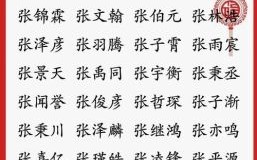 张锦霖 张文翰 张伯元 张林浩
张泽彦 张羽腾 张子霄 张雨宸
张景天 张禹同 张宇衡 张秉丞
张闻誉 张俊彦 张哲琛 张子渐
张秉川 张泽麟 张继鸿 张亦鸣
张嘉亿 张瑾皓 张凌锋 张平源